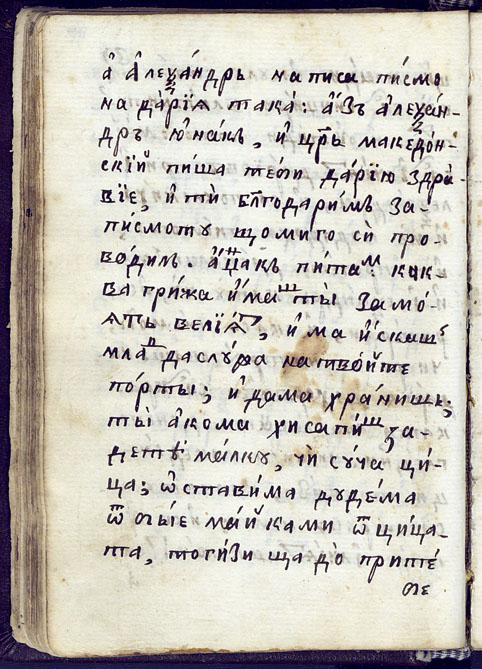 а҆ А҆леѯа́ндрь написа пи́смо
на да́рїѧ така̀: а҆́зъ а҆леѯа́н-
дръ ю҆на́къ, и҆ цр҃ь македо́н-
скїй пи́ша тебѣ да́рїю здра́-
вїе, и҆ тѝ бл҃годари́мъ за-
пи́смоту що ми го сѝ про-
во́дилъ. а҆ пакъ пи́та ᷆ как-
ва гри́жа и҆́машъ ты̀ за мо́-
ѧтъ
да слу́жа на тво́йте
по́рты; и҆ да ма хра́нишь;
ты̀ а҆ко ма хи́сапи́шъ за-
дету̀ ма́лку, чѝ су́ча ци́-
ца; ѡ҆ста́ви ма ду де́ма
ма́йка ми ѿ ци́ца-
та, тоги́зи ща до̀ при те́
бе